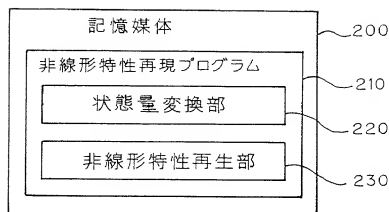 記憶媒体
200
非線形特性再現プログラム
210
状態量変換部
220
非線形特性再生部
230